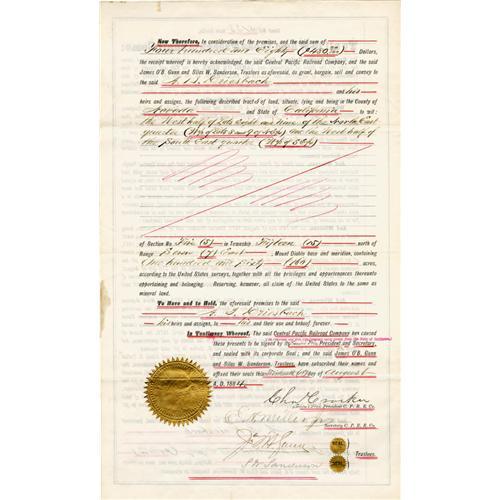 Now Therefore, In consideration of the premises, and the said sum of
Four hundred and Eighty ($480 00/100) Dollars,
the receipt whereof is hereby acknowledged, the said Central Pacific Railroad Company, and the said
James O'B. Gunn and Silas W. Sanderson, Trustees as aforesaid, do grant, bargain, sell and convey to
the said
and his
heirs and assigns, the following described tract of land, situate, lying and being in the County of
Nevada and State of California to wit:
the West half of Lots Eight and Nine of the North East
quarter (W½ of Lots 8 and 9 of NE¼) and the West half of
the South East quarter (W½ of SE¼)
of Section No. Five (5) in Township Fifteen (15) north of
Range Seven (7) East, Mount Diablo base and meridian, containing
One hundred and Sixty (160) acres,
according to the United States surveys, together with all the privileges and appurtenances thereunto
appertaining and belonging. Reserving, however, all claim of the United States to the same as
mineral land.
To Have and to Hold, the aforesaid premises to the said
his heirs and assigns, to his and their use and behoof, forever.
In Testimony Whereof, The said Central Pacific Railroad Company has caused
these presents to be signed by its President and Secretary,
and sealed with its corporate Seal; and the said James O'B. Gunn
and Silas W. Sanderson, Trustees, have subscribed their names and
affixed their seals this day of August
A. D. 1884
Chas Crocker
President C. P. R. R. Co.
E H Miller Jr
Secretary C. P. R. R. Co.
Jas O'B Gunn
SEAL
Trustees.
S W Sanderson
SEAL